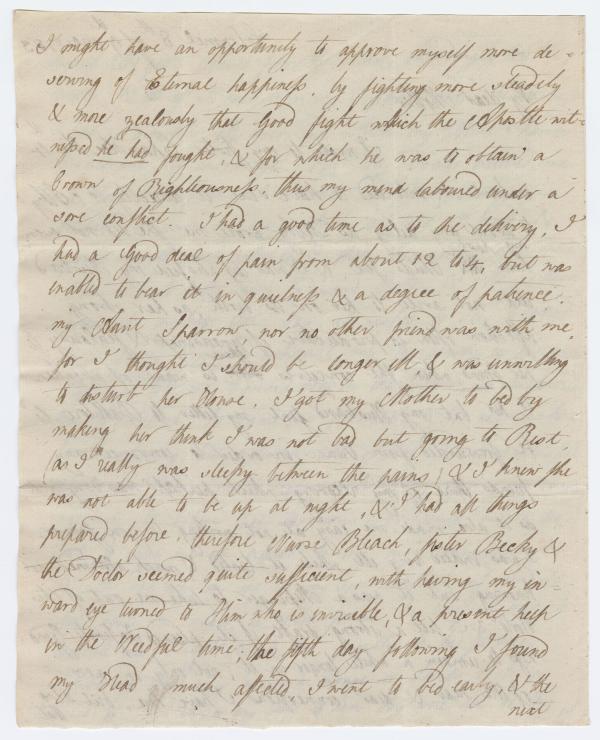 I might have an opportunity to approve myself more de-
serving of Eternal happiness, by fighting more steadily
& more zealously that Good fight which the Apostle wit-
nessed he had fought, & for which he was to obtain a
Crown of Righteousness. thus my mind laboured under a
sore conflict. I had a good time as to the delivery, I
had a Good deal of pain from about 12 to 4, but was
inabled to bear it in quietness & a degree of patience.
my Aunt Sparrow, nor no other friend was with me,
for I thought I should be longer ill, & was unwilling
to disturb her House. I got my Mother to bed by
making her think I was not bad but going to Rest,
(as I really was sleepy between the pains) & I knew she
was not able to be up at night, & I had all things
prepared before. therefore Nurse Bleach, sister Becky &
the Doctor seemed quite sufficient, with having my in-
ward eye turned to Him who is invisible, & a present help
in the Needful time; the fifth day following I found
my Head much affected, I went to bed early, & the
next